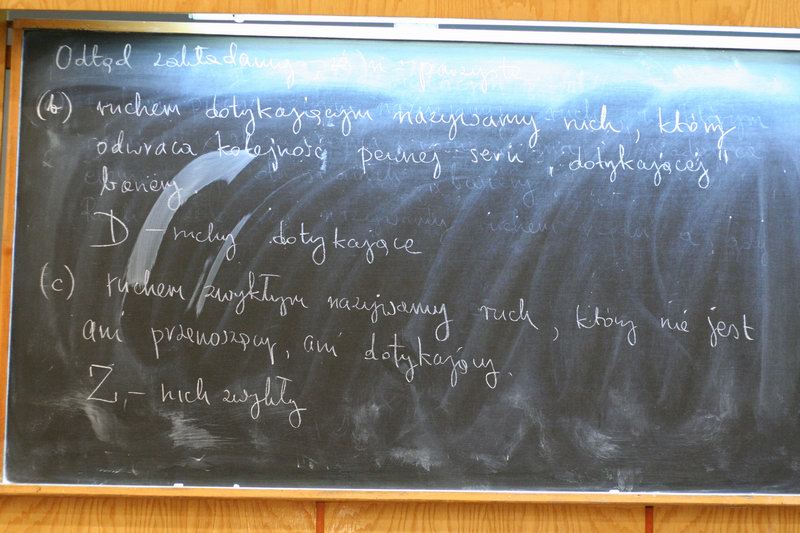 Odtąd zakładamy, że n parzyste
(b) ruchem dotykającym nazywamy ruch, który
odwraca kolejność pewnej serii „dotykającej"
bariery.
D – ruchy dotykające
(c) ruchem zwykłym nazywamy ruch, który nie jest
ani przenoszący, ani dotykający.
Z – ruch zwykły